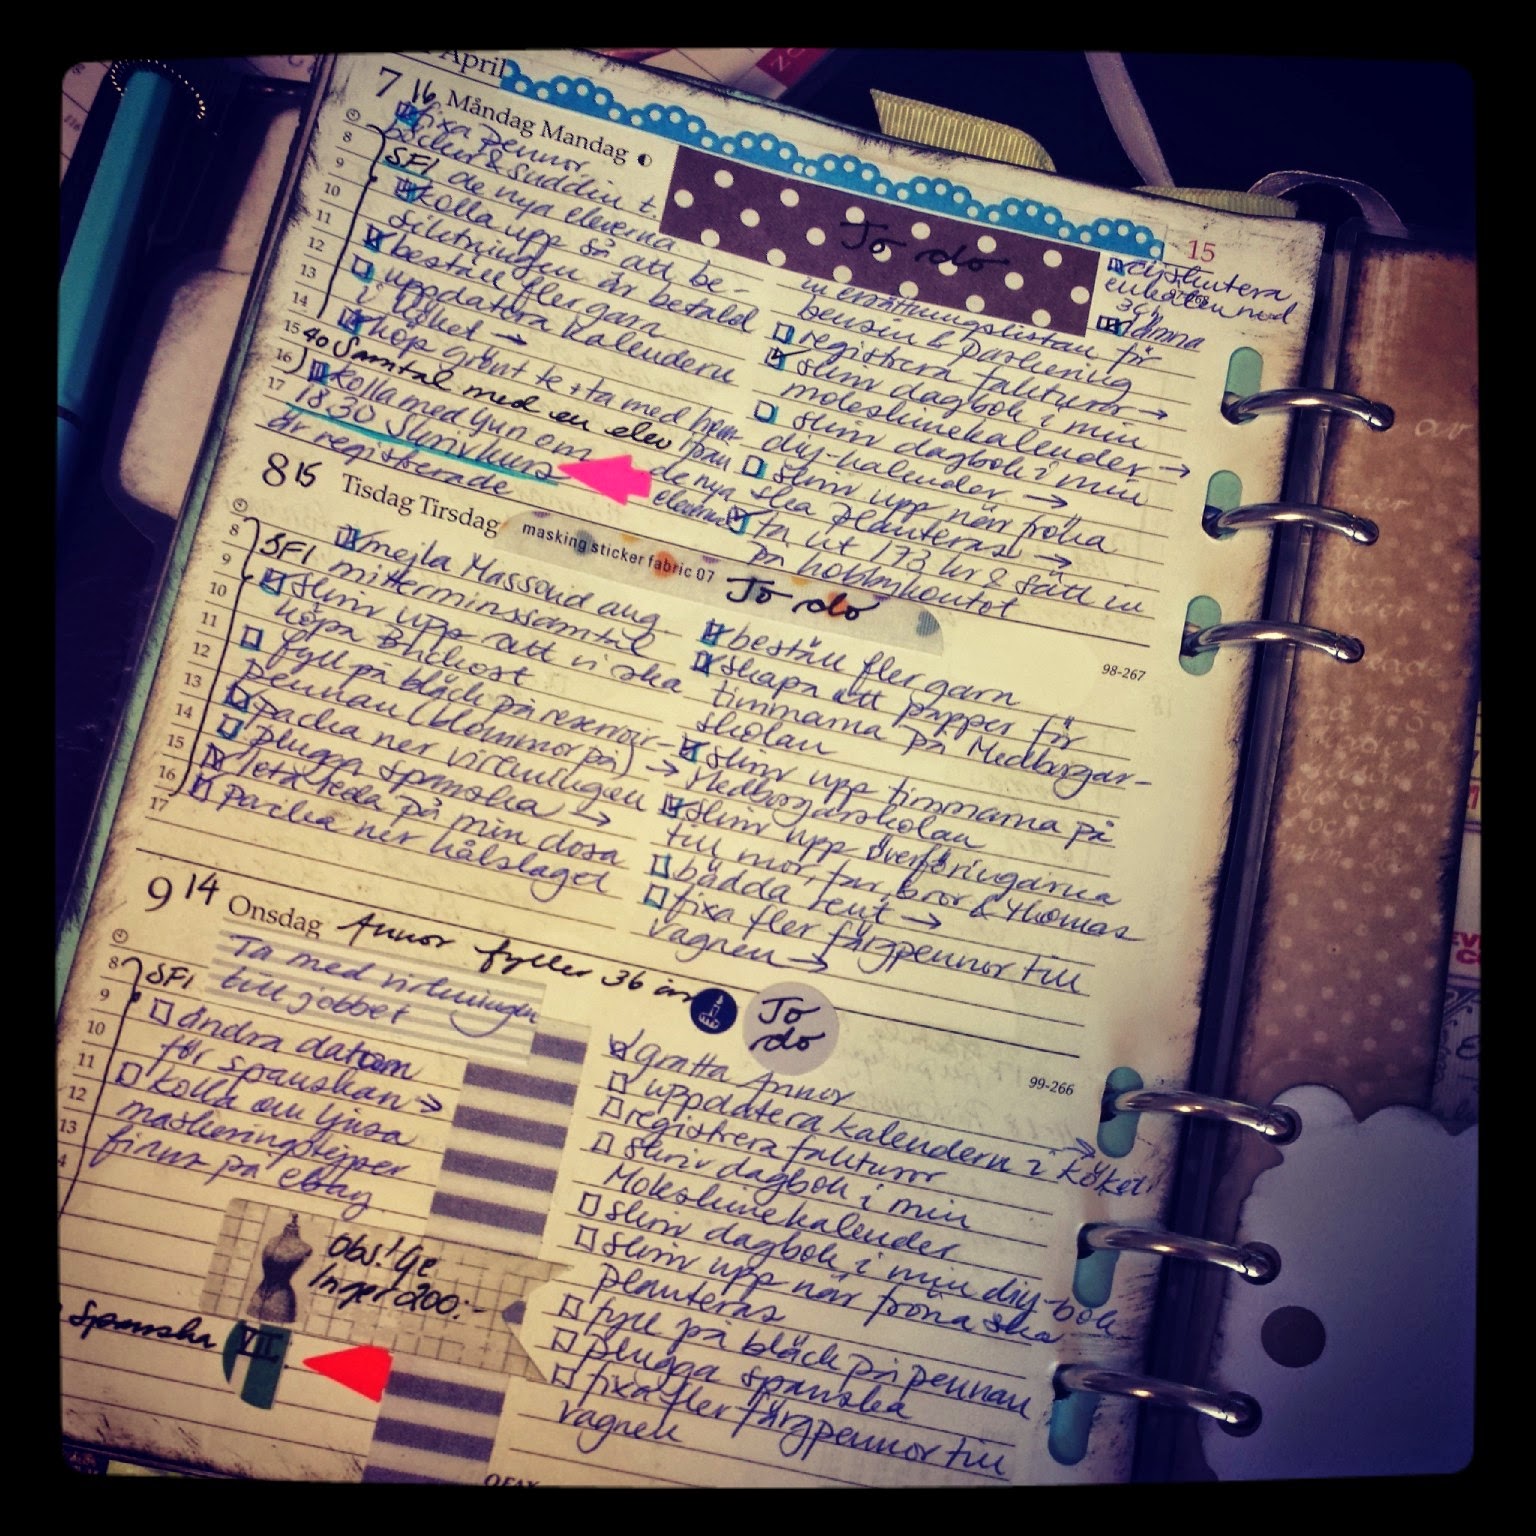 April
7 16 Måndag Mandag
fixa pennor,
böcker & suddin t.
SFI de nya eleverna
kolla upp så att be-
siktningen är betald
beställ fler garn
uppdatera kalendern
i köket →
köp grönt te + ta med hem
15 40 Samtal med en elev
kolla med Gun om de nya eleverna
18.30 Skrivkurs
är registrerade
8
9
10
11
12
13
14
15
16
17
To do
15
enkäten med
3
lämna
bensin & parkering
registrera fakturor →
skriv dagbok i min
moleskinekalender →
skriv dagbok i min
diy-kalender →
skriv upp när fröna
ska planteras →
ta ut 173 kr & sätt in
på hobbykontot
98-267
8 15 Tisdag Tirsdag
masking sticker fabric 07
To do
8
9
10
11
12
13
14
15
16
17
mejla Massoud ang.
SFI mitterminssamtal
skriv upp att vi ska
köpa
fyll på bläck på reservoir-
pennan (blommor på) →
packa ner virkningen
plugga spanska →
leta reda på min dosa
packa ner hålslaget
beställ fler garn
skapa ett papper för
timmarna på Medborgar-
skolan
skriv upp timmarna på
Medborgarskolan
skriv upp överföringarna
till mor, far, bror & Thomas
bädda rent →
fixa fler färgpennor till
vagnen →
9 14 Onsdag Annor fyller 36 år
To
do
99-266
8
9
10
11
12
13
4
SFI
Ta med virkningen
till jobbet
ändra datom
för spanskan →
kolla om ljusa
maskeringstejper
finns på ebay
Obs! Ge
Inger 200:-
Spanska VII
gratta Annor
uppdatera kalendern i köket
registrera fakturor
skriv dagbok i min
Moleskinekalender
skriv dagbok i min diy-bok
skriv upp när fröna ska
planteras
fyll på bläck på pennan
plugga spanska
fixa fler färgpennor till
vagnen